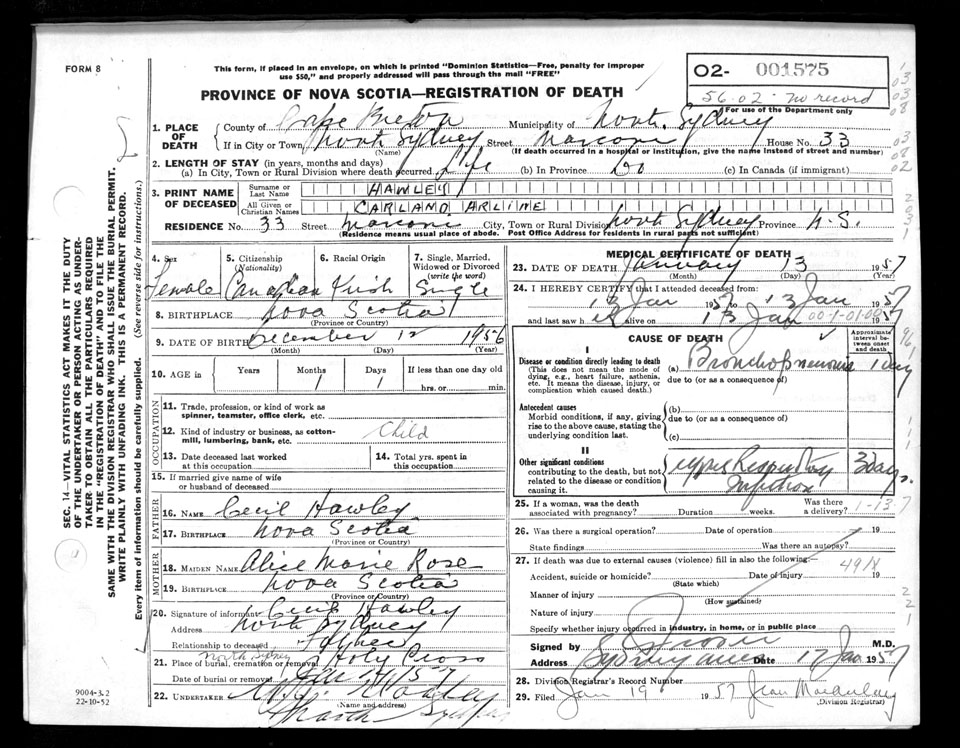 FORM 8
This form, if placed in an envelope, on which is printed "Dominion Statistics—Free, penalty for improper
use $50," and properly addressed will pass through the mail "FREE"
PROVINCE OF NOVA SCOTIA—REGISTRATION OF DEATH
02- 001575
56.02 - no record
For use of the Department only
SEC. 14—VITAL STATISTICS ACT MAKES IT THE DUTY
OF THE UNDERTAKER OR PERSON ACTING AS UNDER-
TAKER TO OBTAIN ALL THE PARTICULARS REQUIRED
IN THE "REGISTRATION OF DEATH" AND TO FILE THE
SAME WITH THE DIVISION REGISTRAR WHO SHALL ISSUE THE BURIAL PERMIT.
WRITE PLAINLY WITH UNFADING INK. THIS IS A PERMANENT RECORD.
Every item of information should be carefully supplied. (See reverse side for instructions.)
1. PLACE OF DEATH County of Cape Breton Municipality of North Sydney
If in City or Town North Sydney Street Marconi House No. 33
(Name) (If death occurred in a hospital or institution, give the name instead of street and number)
2. LENGTH OF STAY (in years, months and days)
(a) In City, Town or Rural Division where death occurred Life (b) In Province Do (c) In Canada (if immigrant)
3. PRINT NAME OF DECEASED Surname or Last Name HAWLEY
All Given or Christian Names CARLAND ARLINE
RESIDENCE No. 33 Street Marconi City, Town or Rural Division North Sydney Province N.S.
(Residence means usual place of abode. Post Office Address for residents in rural parts not sufficient)
4. Sex Female
5. Citizenship (Nationality) Canadian
6. Racial Origin Irish
7. Single, Married, Widowed or Divorced (write the word) Single
8. BIRTHPLACE Nova Scotia
(Province or Country)
9. DATE OF BIRTH December 12 1956
(Month) (Day) (Year)
10. AGE in Years Months 1 Days 1 If less than one day old hrs. or min.
OCCUPATION
11. Trade, profession, or kind of work as spinner, teamster, office clerk, etc.
12. Kind of industry or business, as cotton-mill, lumbering, bank, etc. Child
13. Date deceased last worked at this occupation
14. Total yrs. spent in this occupation
15. If married give name of wife or husband of deceased
FATHER
16. NAME Cecil Hawley
17. BIRTHPLACE Nova Scotia
(Province or Country)
MOTHER
18. MAIDEN NAME Alice Marie Rose
19. BIRTHPLACE Nova Scotia
(Province or Country)
20. Signature of informant Cecil Hawley
Address North Sydney
Relationship to deceased Father
21. Place of burial, cremation or removal North Sydney Holy Cross
Date of burial or removal
22. UNDERTAKER
(Name and address)
North Sydney
MEDICAL CERTIFICATE OF DEATH
23. DATE OF DEATH January 13 1957
(Month) (Day) (Year)
24. I HEREBY CERTIFY that I attended deceased from:
13 Jan 1957 to 13 Jan 1957
and last saw h er alive on 13 Jan
CAUSE OF DEATH
Approximate interval between onset and death
I
Disease or condition directly leading to death (a) Bronchopneumonia 1 day
(This does not mean the mode of dying, e.g., heart failure, asthenia, etc. It means the disease, injury, or complication which caused death.)
due to (or as a consequence of)
Antecedent causes (b)
Morbid conditions, if any, giving rise to the above cause, stating the underlying condition last.
due to (or as a consequence of)
(c)
II
Other significant conditions contributing to the death, but not related to the disease or condition causing it.
Upper Respiratory Infection 3 days
25. If a woman, was the death associated with pregnancy? Duration weeks. Was there a delivery?
26. Was there a surgical operation? Date of operation 19
State findings Was there an autopsy?
27. If death was due to external causes (violence) fill in also the following:—
Accident, suicide or homicide? Date of injury 19
(State which)
Manner of injury
(How sustained)
Nature of injury
Specify whether injury occurred in industry, in home, or in public place
Signed by M.D.
Address Sydney Mines Date 17 Jan 1957
28. Division Registrar's Record Number
29. Filed Jan 19 1957
(Division Registrar)
9004-3.2
22-10-52